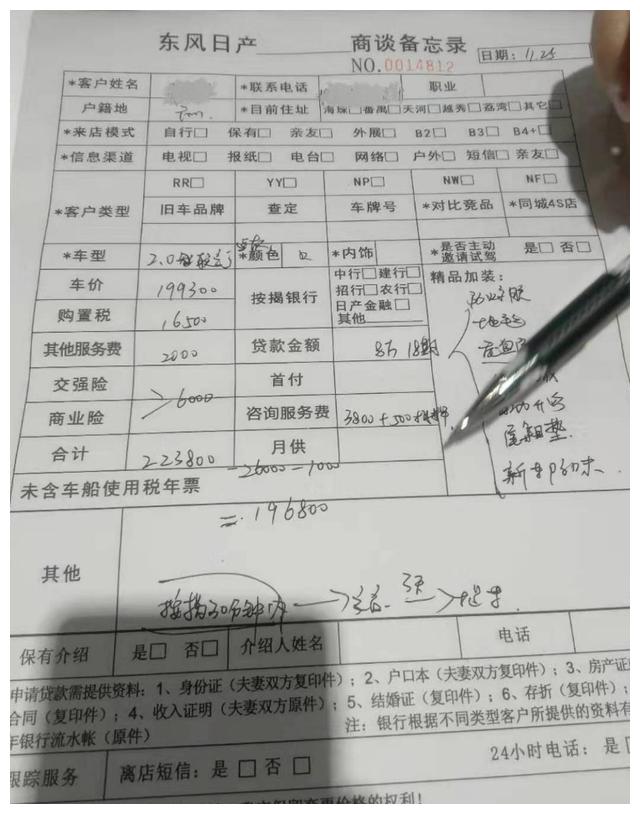 东风日产 商谈备忘录
NO.0014812 日期: 11.25
*客户姓名 *联系电话 职业
户籍地 *目前住址 海珠□番禺□天河□越秀□荔湾□其它□
*来店模式 自行□ 保有□ 亲友□ 外展□ B2□ B3□ B4+□
*信息渠道 电视□ 报纸□ 电台□ 网络□ 户外□ 短信□ 亲友□
*客户类型 RR□ YY□ NP□ NW□ NF□
旧车品牌 查定 车牌号 *对比竞品 *同城4S店
*车型 2.0 *颜色 *内饰 *是否主动邀请试驾 是□ 否□
车价 199300 按揭银行 中行□ 建行□ 精品加装:
招行□ 农行□
日产金融□
其他
购置税 16500
其他服务费 2000 贷款金额 8万 18期
交强险 6000 首付
商业险 咨询服务费 3800+500
尾箱垫
合计 223800 月供
未含车船使用税年票 -26000-1000
=196800
其他
按揭30分钟内
保有介绍 是□ 否□ 介绍人姓名 电话
申请贷款需提供资料: 1、身份证(夫妻双方复印件); 2、户口本(夫妻双方复印件); 3、房产证
合同(复印件); 4、收入证明(夫妻双方原件); 5、结婚证(复印件); 6、存折(复印件);
年银行流水帐(原件) 注: 银行根据不同类型客户所提供的资料有
跟踪服务 离店短信: 是□ 否□ 24小时电话: 是
价格的权利!